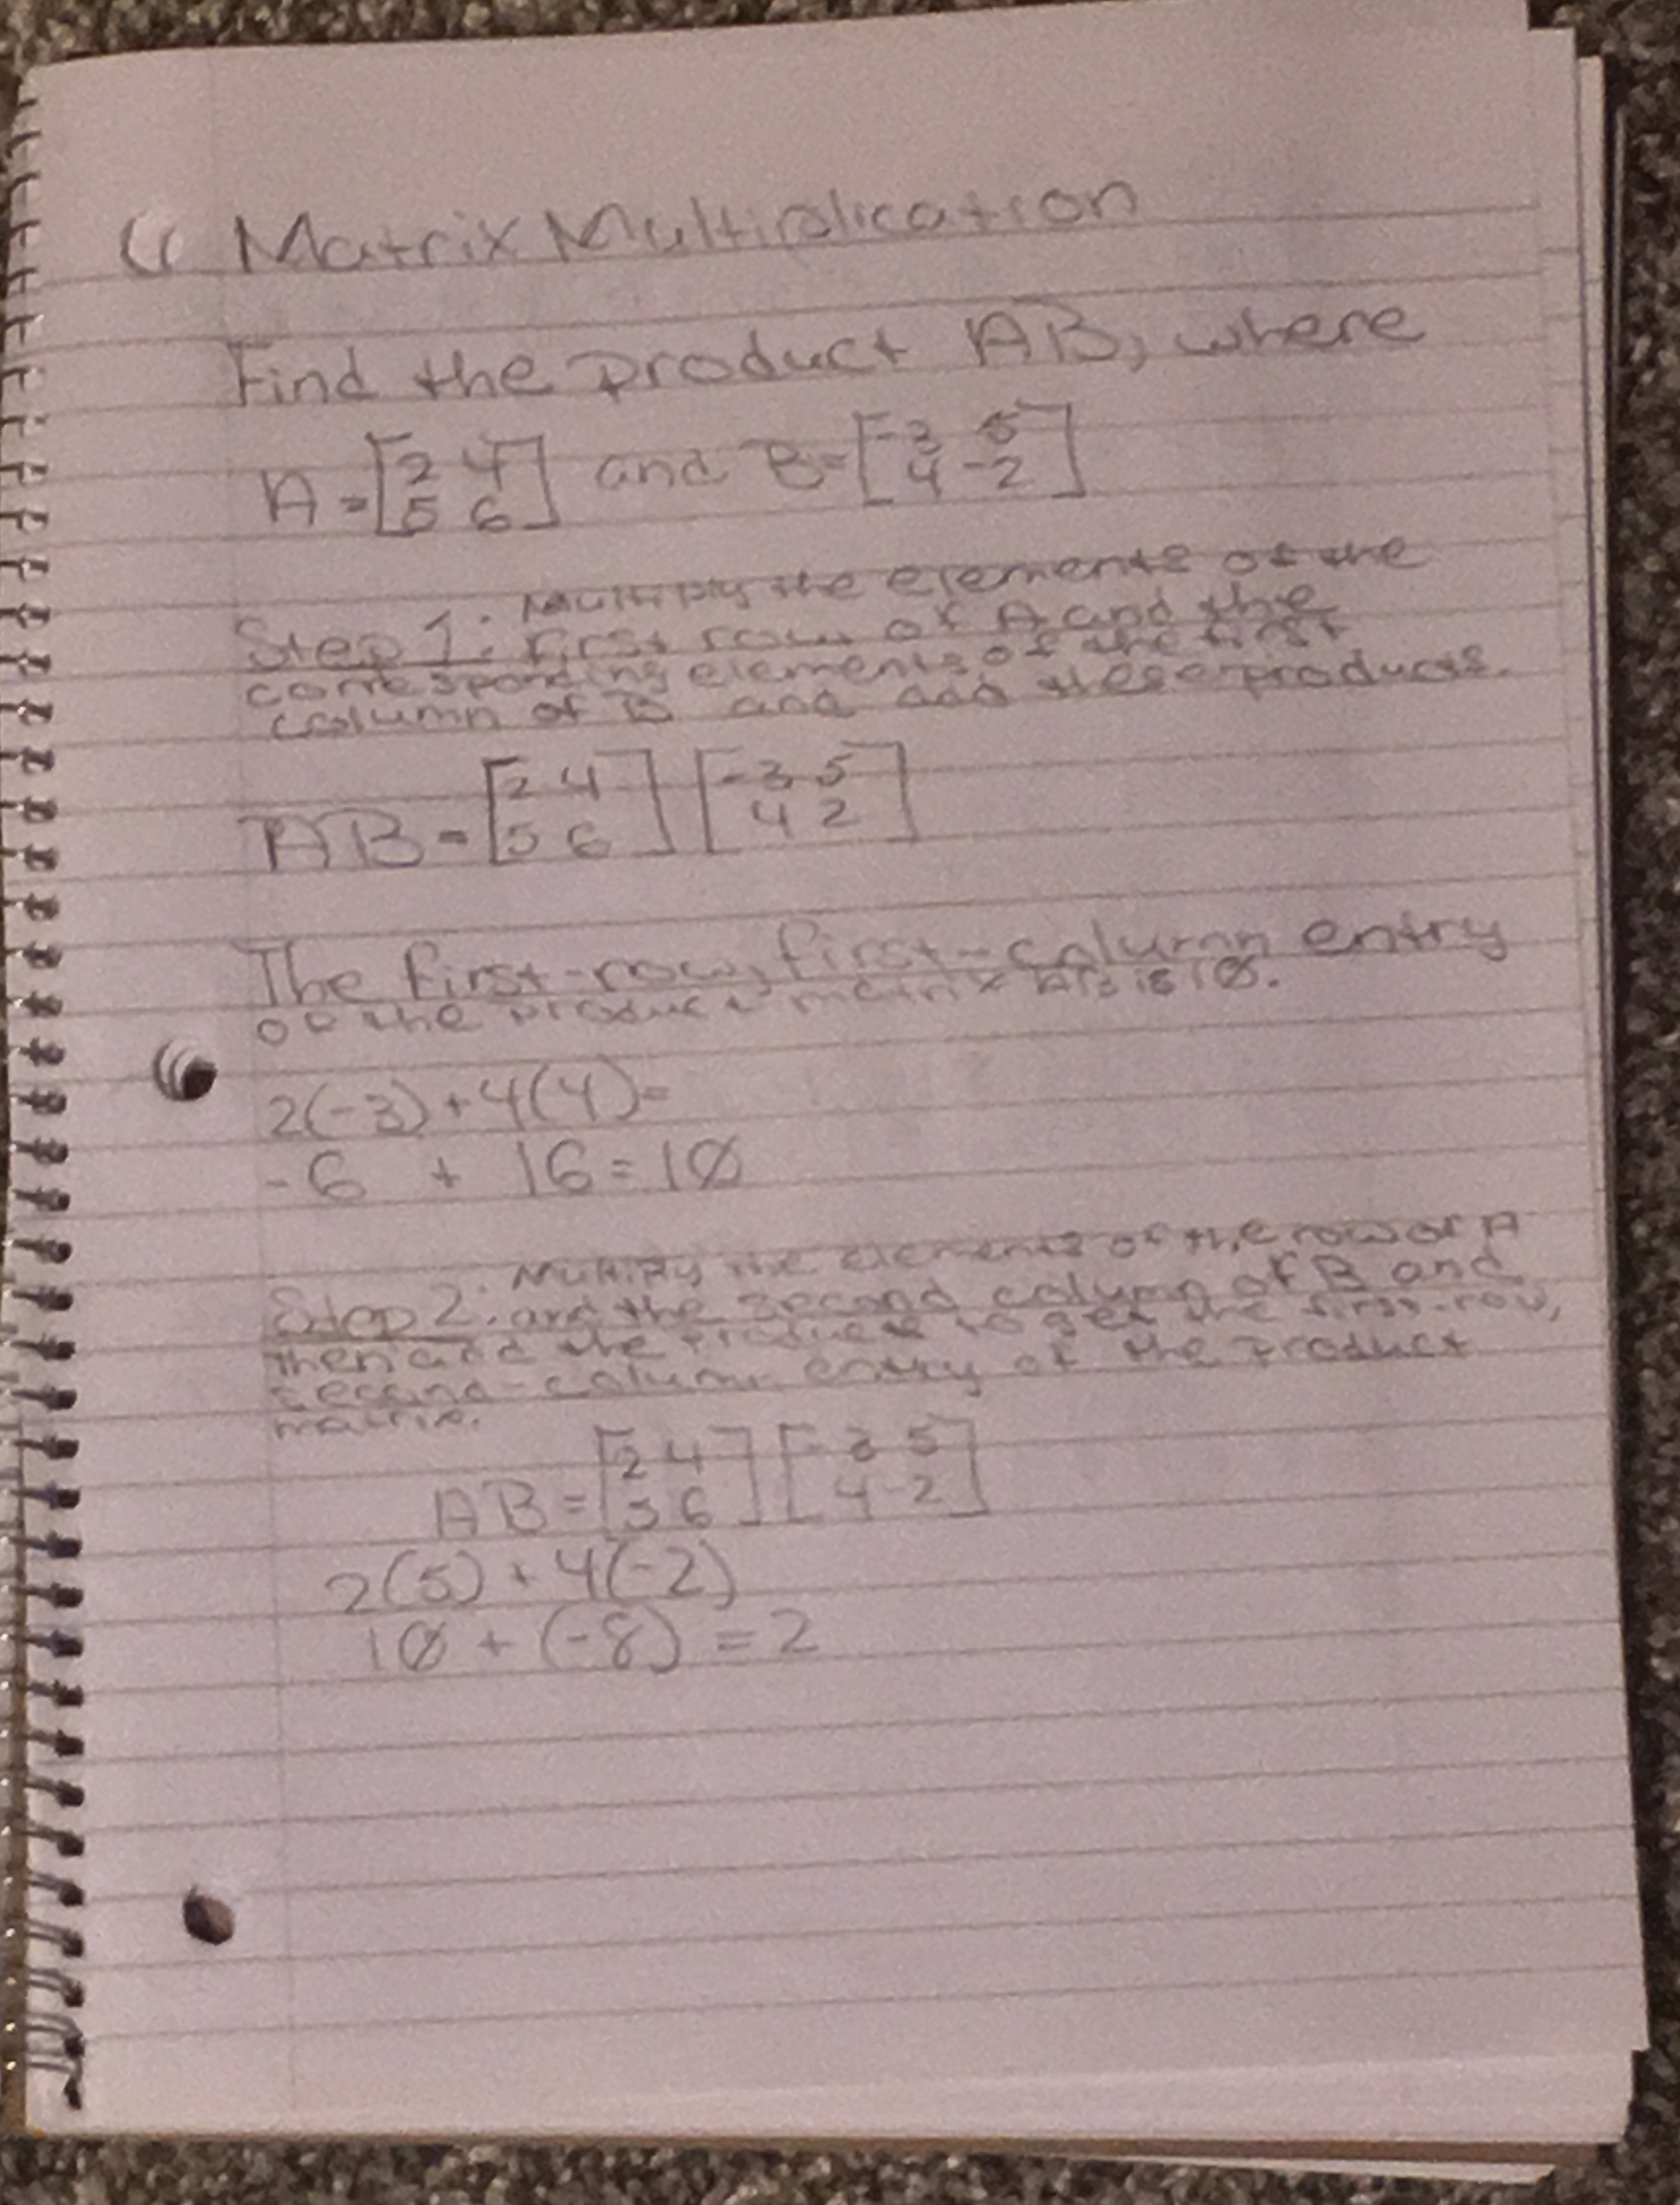 Matrix Multiplication
Find the product AB, where
A = [2 4
5 6] and B = [-3 5
4 -2]
Multiply the elements of the
Step 1: first row of A and the
corresponding elements of the first
column of B and add these products.
AB = [2 4
5 6] [-3 5
4 2]
The first-row, first-column entry
of the product matrix AB is 10.
2(-3) + 4(4) =
-6 + 16 = 10
Multiply the elements of the row of A
Step 2: and the second column of B and
then add the products to get the first-row,
second-column entry of the product
matrix.
AB = [2 4
5 6] [-3 5
4 -2]
2(5) + 4(-2)
10 + (-8) = 2